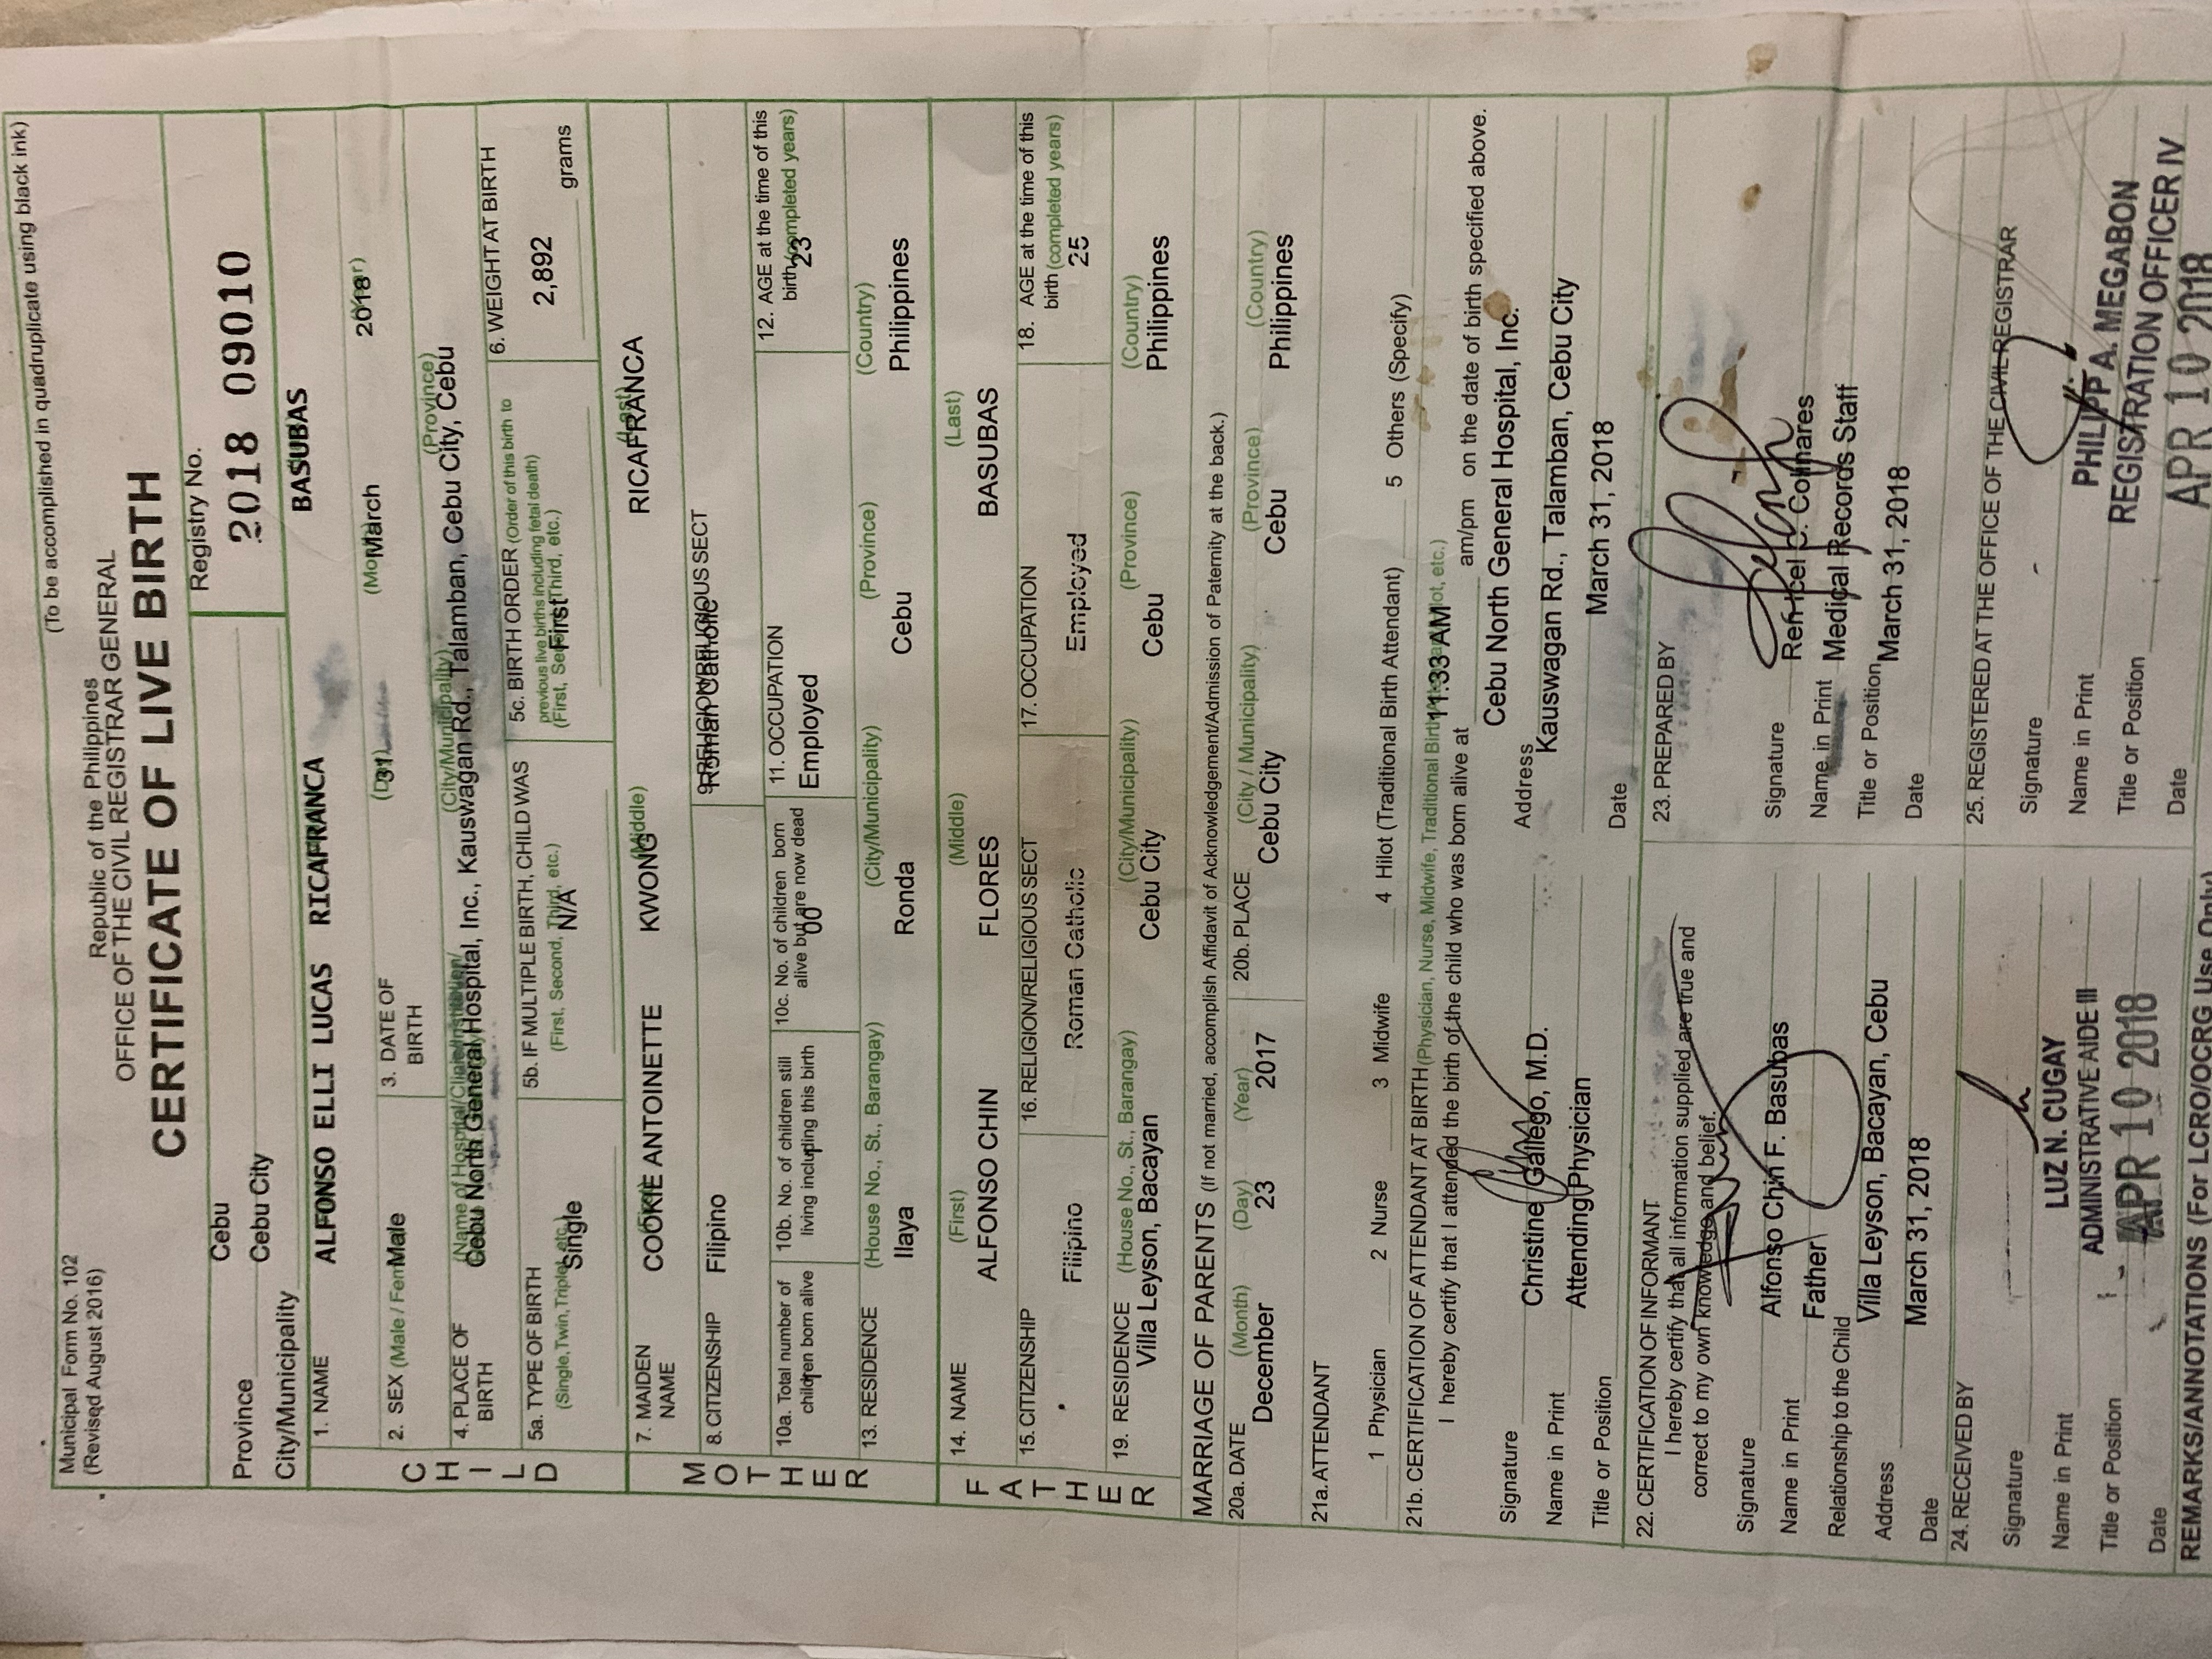 Municipal Form No. 102
(Revised August 2016)
(To be accomplished in quadruplicate using black ink)
Republic of the Philippines
OFFICE OF THE CIVIL REGISTRAR GENERAL
CERTIFICATE OF LIVE BIRTH
Province Cebu
City/Municipality Cebu City
Registry No.
2018 09010
CHILD
1. NAME ALFONSO ELLI LUCAS RICAFRANCA BASUBAS
2. SEX (Male / Female) Male
3. DATE OF BIRTH (Day) 31 (Month) March (Year) 2018
4. PLACE OF BIRTH (Name of Hospital/Clinic/Institution/ (City/Municipality) (Province)
Cebu North General Hospital, Inc., Kauswagan Rd., Talamban, Cebu City, Cebu
5a. TYPE OF BIRTH (Single, Twin, Triplet, etc.) Single
5b. IF MULTIPLE BIRTH, CHILD WAS (First, Second, Third, etc.) N/A
5c. BIRTH ORDER (Order of this birth to previous live births including fetal death) (First, Second, Third, etc.) First
6. WEIGHT AT BIRTH 2,892 grams
MOTHER
7. MAIDEN NAME (First) COOKIE ANTOINETTE (Middle) KWONG (Last) RICAFRANCA
8. CITIZENSHIP Filipino
9. RELIGION/RELIGIOUS SECT Roman Catholic
10a. Total number of children born alive
10b. No. of children still living including this birth
10c. No. of children born alive but are now dead 00
11. OCCUPATION Employed
12. AGE at the time of this birth (completed years) 23
13. RESIDENCE (House No., St., Barangay) (City/Municipality) (Province) (Country)
Ilaya Ronda Cebu Philippines
FATHER
14. NAME (First) (Middle) (Last)
ALFONSO CHIN FLORES BASUBAS
15. CITIZENSHIP Filipino
16. RELIGION/RELIGIOUS SECT Roman Catholic
17. OCCUPATION Employed
18. AGE at the time of this birth (completed years) 25
19. RESIDENCE (House No., St., Barangay) (City/Municipality) (Province) (Country)
Villa Leyson, Bacayan Cebu City Cebu Philippines
MARRIAGE OF PARENTS (If not married, accomplish Affidavit of Acknowledgement/Admission of Paternity at the back.)
20a. DATE (Month) (Day) (Year)
December 23 2017
20b. PLACE (City / Municipality) (Province) (Country)
Cebu City Cebu Philippines
21a. ATTENDANT
1 Physician 2 Nurse 3 Midwife 4 Hilot (Traditional Birth Attendant) 5 Others (Specify)
21b. CERTIFICATION OF ATTENDANT AT BIRTH (Physician, Nurse, Midwife, Traditional Birth Attendant/Hilot, etc.)
I hereby certify that I attended the birth of the child who was born alive at 11:33 AM am/pm on the date of birth specified above.
Signature
Name in Print Christine Gallego, M.D.
Title or Position Attending Physician
Cebu North General Hospital, Inc.
Address Kauswagan Rd., Talamban, Cebu City
Date March 31, 2018
22. CERTIFICATION OF INFORMANT
I hereby certify that all information supplied are true and
correct to my own knowledge and belief.
Signature
Name in Print Alfonso Chin F. Basubas
Relationship to the Child Father
Address Villa Leyson, Bacayan, Cebu
Date March 31, 2018
23. PREPARED BY
Signature
Name in Print Colinares
Title or Position Medical Records Staff
Date March 31, 2018
24. RECEIVED BY
Signature
Name in Print LUZ N. CUGAY
Title or Position ADMINISTRATIVE AIDE III
Date APR 10 2018
25. REGISTERED AT THE OFFICE OF THE CIVIL REGISTRAR
Signature
Name in Print PHILIPP A. MEGABON
Title or Position REGISTRATION OFFICER IV
Date APR 10 2018
REMARKS/ANNOTATIONS (For LCRO/OCRG Use Only)